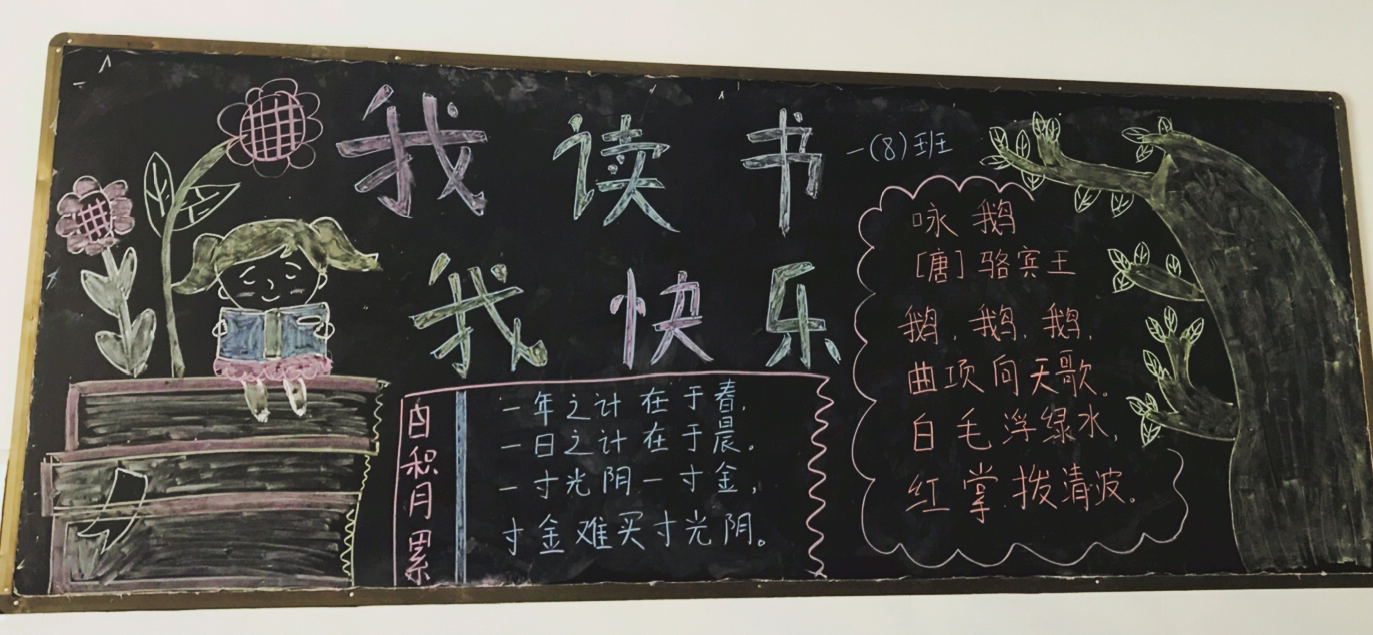 我读书
一(8)班
我快乐
日积月累
一年之计在于春,
一日之计在于晨。
一寸光阴一寸金,
寸金难买寸光阴。
咏鹅
[唐]骆宾王
鹅,鹅,鹅,
曲项向天歌。
白毛浮绿水,
红掌拨清波。